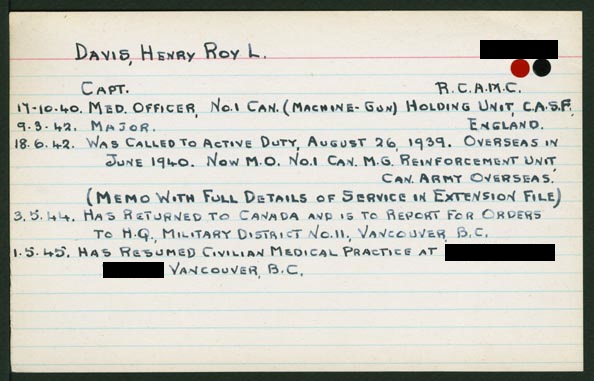 DAVIS, HENRY ROY L.
CAPT. R.C.A.M.C.
17-10-40. MED. OFFICER, NO.1 CAN. (MACHINE-GUN) HOLDING UNIT, C.A.S.F.
9.3.42. MAJOR. ENGLAND.
18.6.42. WAS CALLED TO ACTIVE DUTY, AUGUST 26, 1939. OVERSEAS IN
JUNE 1940. NOW M.O. NO.1 CAN. M.G. REINFORCEMENT UNIT
CAN. ARMY OVERSEAS.
(MEMO WITH FULL DETAILS OF SERVICE IN EXTENSION FILE)
3.5.44. HAS RETURNED TO CANADA AND IS TO REPORT FOR ORDERS
TO H.Q., MILITARY DISTRICT NO.11, VANCOUVER, B.C.
1.5.45. HAS RESUMED CIVILIAN MEDICAL PRACTICE AT
VANCOUVER, B.C.